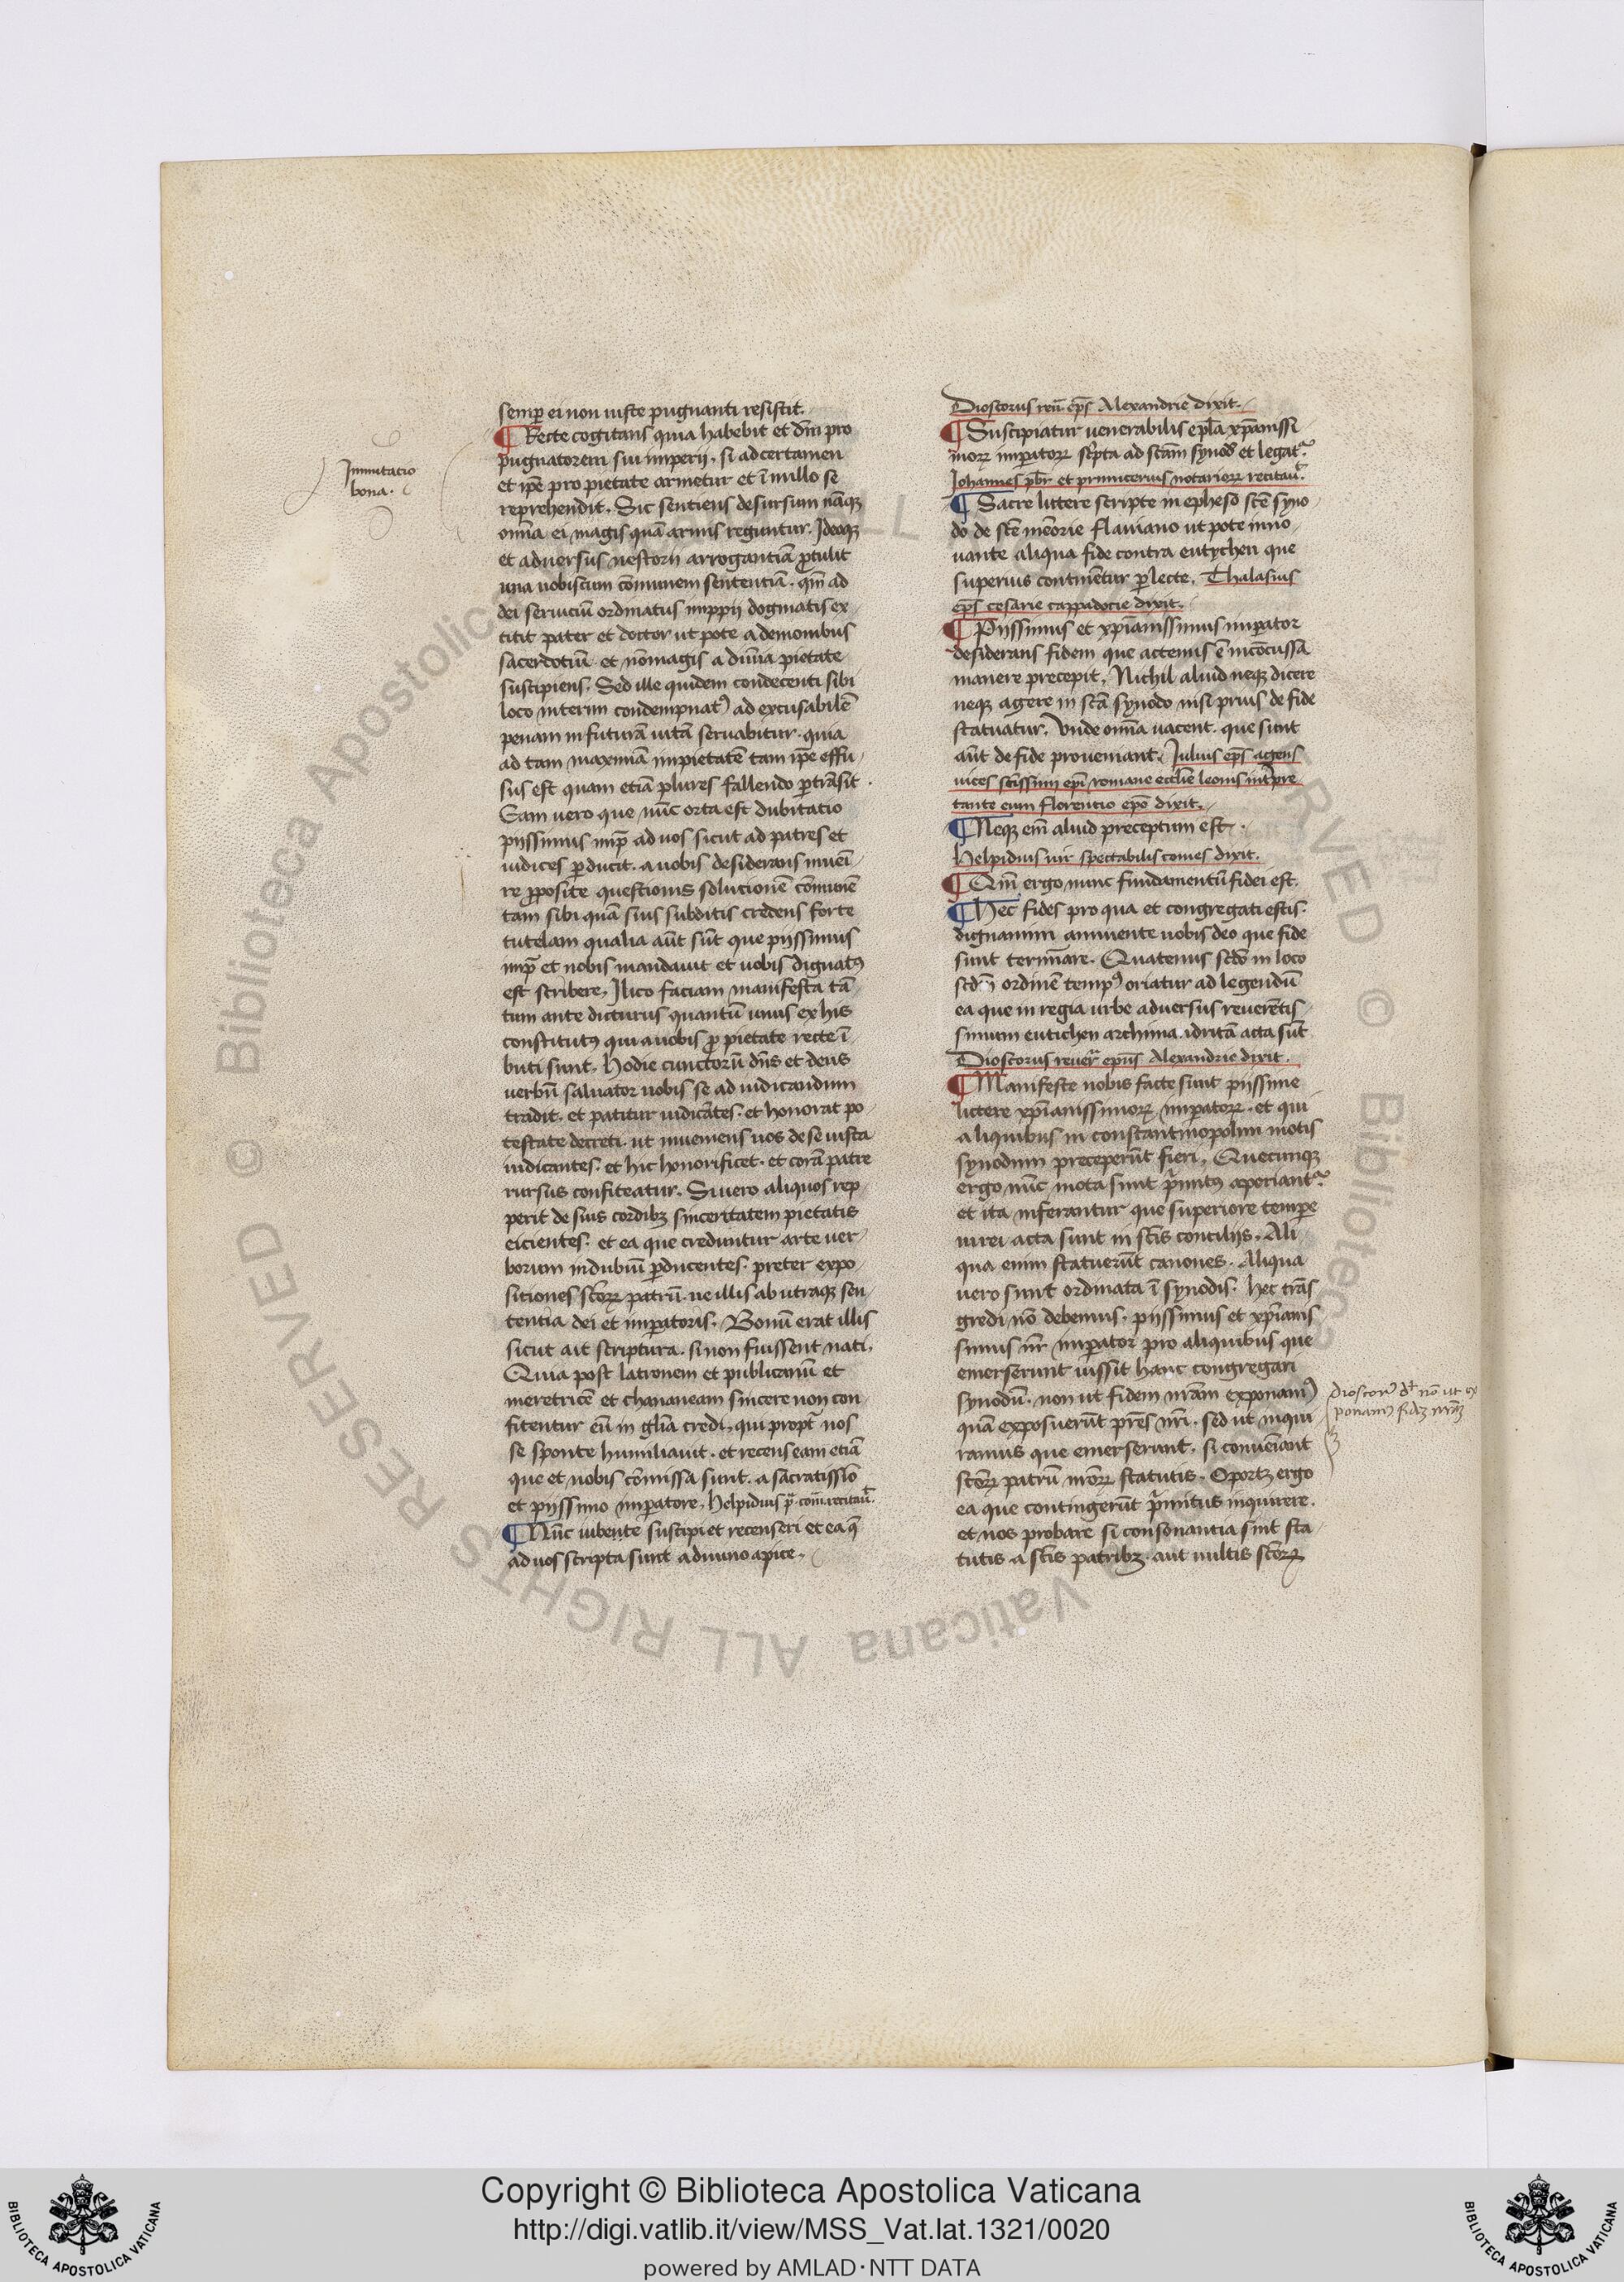 semp̄ ei non iuste pugnanti resistit.
¶ Recte cogitans quia habebit et dm̄ pro
pugnatorem sui imperij. si ad certamen
et ip̄e pro pietate armetur et ī nullo se
reprehendit. Sic sentiens desursum nāqꝫ
om̄ia ei magis quā armis reguntur. Ideoqꝫ
et adversus nestorii arrogantiā ꝓtulit
una vobiscum cōmunem sententiā. qm̄ ad
dei seruiciū ordinatus impij dogmatis ex
titit pater et doctor ut pote a demonibus
sacerdotiū et nō magis a diuīa pietate
suscipiens. Sed ille quidem condecenti sibi
loco interim condempnatꝰ ad excusabilē
penam in futurā uitā seruabitur. quia
ad tam maximā impietatē tam ip̄e effu
sus est quam etiā plures fallendo ꝑtrāsit.
Eam uero que nūc orta est dubitatio
pijssimus imp̄r ad uos sicut ad patres et
iudices ꝑducit. a uobis desiderans inuei
re ꝓposite questionis solucionē cōmunē
tam sibi quā suis subditis credens forte
tutelam qualia aūt sūt que pijssimus
imp̄r et nobis mandauit et uobis dignatꝰ
est scribere, Ilico faciam manifesta tā
tum ante dicturus quantū unus ex his
constitutꝰ qui a uobis ꝓ pietate recte ī
buti sunt. Hodie cunctorū dn̄s et deus
uerbū saluator uobis se ad iudicandum
tradit. et patitur iudicātes. et honorat po
testate decreti. ut inueniens uos de se iusta
iudicantes. et hic honorificet. et corā patre
rursus confiteatur. Si uero aliquos rep
perit de suis cordibꝫ sinceritatem pietatis
eicientes. et ea que creduntur arte uer
borum in dubiū ꝑducentes. preter expo
sitiones sc̄orꝝ patrū. ue illis ab utraqꝫ sen
tentia dei et imperatoris. Bonū erat illis
sicut ait scriptura. si non fuissent nati.
Quia post latronem et publicanū et
meretricē et chananeam sincere non con
fitentur eū in gl̄ia credi, qui propt̄ nos
se sponte humiliauit. et recenseam etiā
que et nobis cōmissa sunt. a sacratissīo
et pijssimo imperatore, Helpidius p̄. com̄. recitau̅.
¶ Nūc iubente suscipi et recenseri et ea q̄
ad uos scripta sunt a diuino apice.
Immutatio
bona.
Dioscorus reū. ep̄s Alexandrie dixit.
¶ Suscipiatur uenerabilis epl̄a xp̄ianissi
morꝝ imperatorꝝ sc̄pta ad sc̄am synod̄ et legat̄.
Iohannes pb̄r et primicerius notariorꝝ recitau̅.
¶ Sacre littere scripte in epheso sc̄e syno
do de sc̄e mēorie flauiano ut pote inno
uante aliqua fide contra eutychen que
superius continētur ꝑlecte. Thalasius
ep̄s cesarie cappadocie dixit.
¶ Pijssimus et xp̄ianissimus imperator
desiderans fidem que actenus ē incōcussā
manere precepit. Nichil aliud neqꝫ dicere
neqꝫ agere in sc̄a synodo nisi prius de fide
statuatur. Unde om̄ia uacent. que sunt
aūt de fide proueniant. Iulius ep̄s agens
uices sc̄issimi ep̄i romane eccl̄ie leonis int̄pre
tante eum florentio ep̄o dixit.
¶ Neqꝫ em̄ aliud preceptum est.
Helpidius uir spectabilis comes dixit.
¶ Qm̄ ergo nunc fundamentū fidei est.
¶ Hec fides pro qua et congregati estis.
dignamini annuente uobis deo que fide
sunt terminare. Quatenus sc̄do in loco
scd̄m ordinē tempꝰ oriatur ad legendū
ea que in regia urbe aduersus reuerētis
simum eutichen archima idritā acta sūt
Dioscorus reuer̄ epūs Alexandrie dixit.
¶ Manifeste nobis facte sunt pijssime
littere xp̄ianissimorꝝ imperatorꝝ. et qui
aliquibus in constantinopolim motis
synodum preceperūt fieri. Quecunqꝫ
ergo nūc mota sunt p̄mitꝰ aperiant̄.
et ita inferantur que superiore tempore
iurei acta sunt in sc̄is concilijs. Ali
qua enim statuerūt canones. Aliqua
uero sunt ordinata ī synodis. hec trās
gredi nō debemus. pijssimus et xp̄ianis
simus nr̄ imperator pro aliquibus que
emerserunt iussit hanc congregari
synodū. non ut fidem nr̄am exponamꝰ
quā exposuerūt pr̄es nr̄i. sed ut inqui
ramus que emerserunt. si conueīant
sc̄orꝝ patrū nr̄orꝝ statutis. Oportꝫ ergo
ea que contingerūt p̄mitus inquirere.
et nos probare si consonantia sint sta
tutis a sc̄is patribꝫ. aut nultis sc̄orꝝ
dioscorꝰ dt̄ nō ut ex
ponamꝰ fidꝫ nr̄aꝫ
Copyright © Biblioteca Apostolica Vaticana
http://digi.vatlib.it/view/MSS_Vat.lat.1321/0020
powered by AMLAD·NTT DATA
BIBLIOTECA APOSTOLICA VATICANA
BIBLIOTECA APOSTOLICA VATICANA
© Biblioteca Apostolica Vaticana ALL RIGHTS RESERVED